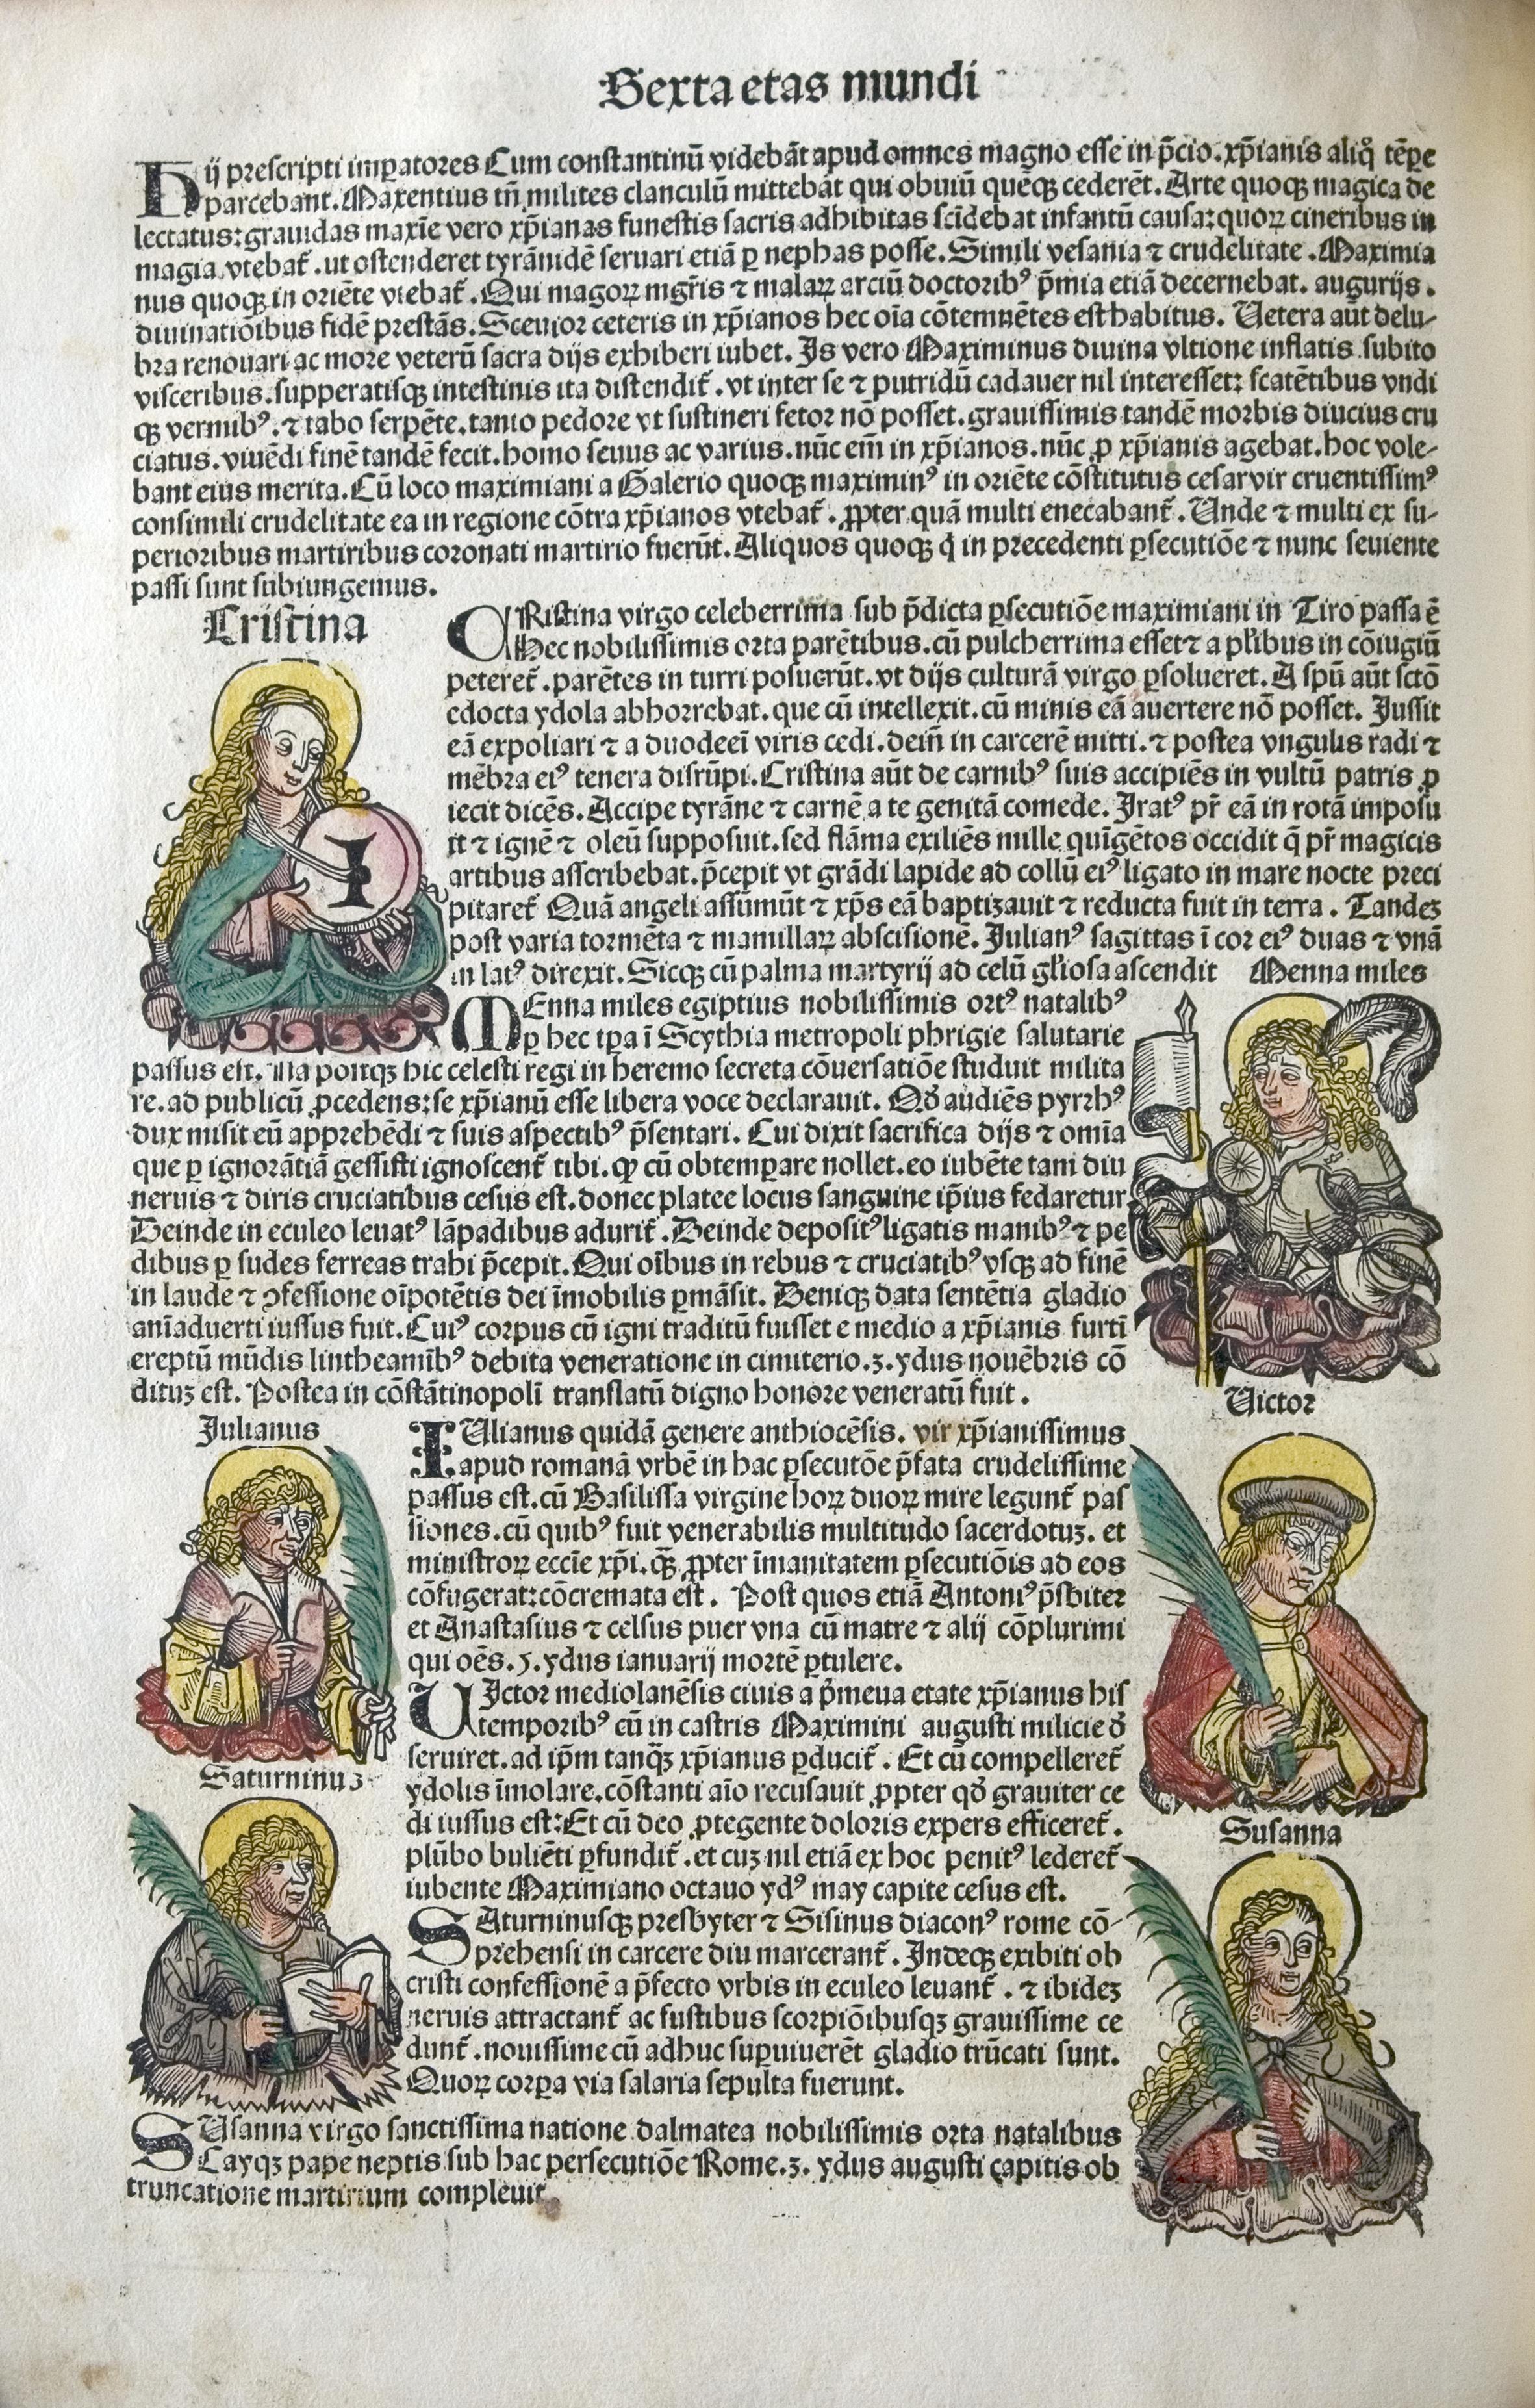 Sexta etas mundi
Hij prescripti impatores Cum constantinū videbāt apud omnes magno esse in p̄cio. xp̄ianis aliqͦ tēpe
parcebant. Maxentius tn̄ milites clanculū mittebat qui obuiū quēqꝫ cederēt. Arte quoqꝫ magica de
lectatus: grauidas maxīe vero xp̄ianas funestis sacris adhibitas scīdebat infantū causa: quoꝝ cineribus in
magia vtebat̄. ut ostenderet tyrānidē seruari etiā ꝑ nephas posse. Simili vesania ⁊ crudelitate. Maximia
nus quoqꝫ in oriēte vtebat̄. Qui magoꝝ mgr̄is ⁊ malaꝝ arciū doctoribꝰ p̄mia etiā decernebat. augurijs.
diuinatiōibus fidē prestās. Sceuior ceteris in xp̄ianos hec oīa cōtemnētes est habitus. Uetera aūt delu-
bra renouari ac more veterū sacra dijs exhiberi iubet. Is vero Maximinus diuina vltione inflatis subito
visceribus. supperatisqꝫ intestinis ita distendit̄. vt inter se ⁊ putridū cadauer nil interesset: scatētibus vndi
qꝫ vermibꝰ. ⁊ tabo serpēte. tanto pedore vt sustineri fetor nō posset. grauissimis tandē morbis diucius cru
ciatus. viuēdi finē tandē fecit. homo seuus ac varius. nūc em̄ in xp̄ianos. nūc ꝓ xp̄ianis agebat. hoc vole-
bant eius merita. Cū loco maximiani a Galerio quoqꝫ maximinꝰ in oriēte cōstitutus cesar vir cruentissimꝰ
consimili crudelitate ea in regione cōtra xp̄ianos vtebat̄. ꝓpter quā multi enecabant̄. Unde ⁊ multi ex su-
perioribus martiribus coronati martirio fuerūt. Aliquos quoqꝫ q̇ in precedenti ꝑsecutiōe ⁊ nunc seuiente
passi sunt subiungemus.
Cristina
CRistina virgo celeberrima sub p̄dicta ꝑsecutiōe maximiani in Tiro passa ē
Hec nobilissimis orta parētibus. cū pulcherrima esset ⁊ a pl'ibus in cōiugiū
peteret̄. parētes in turri posuerūt. vt dijs culturā virgo ꝑsolueret. A spū aūt sctō
edocta ydola abhorrebat. que cū intellexit. cū minis eā auertere nō posset. Jussit
eā expoliari ⁊ a duodeci viris cedi. dein̄ in carcerē mitti. ⁊ postea vngulis radi ⁊
mēbra eiꝰ tenera disrūpi. Cristina aūt de carnibꝰ suis accipiēs in vultū patris ꝓ
iecit dicēs. Accipe tyrāne ⁊ carnē a te genitā comede. Jratꝰ pr̄ eā in rotā imposu
it ⁊ ignē ⁊ oleū supposuit. sed flāma exiliēs mille quīgētos occidit q̄ pr̄ magicis
artibus asscribebat. p̄cepit vt grādi lapide ad collū eiꝰ ligato in mare nocte preci
pitaret̄ Quā angeli assūmūt ⁊ xp̄s eā baptizauit ⁊ reducta fuit in terra. Tandeꝫ
post varia tormēta ⁊ mamillaꝝ abscisionē. Julianꝰ sagittas ī cor eiꝰ duas ⁊ vnā
in latꝰ direxit. Sicqꝫ cū palma martyrij ad celū gl'iosa ascendit
Menna miles
MEnna miles egiptius nobilissimis ortꝰ natalibꝰ
ꝑ hec tꝑa ī Scythia metropoli phrigie salutarie
passus est. Na postqꝫ hic celesti regi in heremo secreta cōuersatiōe studuit milita
re. ad publicū ꝓcedens: se xp̄ianū esse libera voce declarauit. Qd̄ audiēs pyrrhꝰ
dux misit eū apprehēdi ⁊ suis aspectibꝰ p̄sentari. Cui dixit sacrifica dijs ⁊ omīa
que ꝑ ignorātiā gessisti ignoscent̄ tibi. qͥ cū obtemꝑare nollet. eo iubēte tam diu
neruis ⁊ diris cruciatibus cesus est. donec platee locus sanguine ip̄ius fedaretur
Deinde in eculeo leuatꝰ lāpadibus adurit̄. Deinde depositꝰ ligatis manibꝰ ⁊ pe
dibus ꝑ sudes ferreas trahi p̄cepit. Qui oībus in rebus ⁊ cruciatibꝰ vsqꝫ ad finē
in laude ⁊ ꝯfessione oīpotētis dei īmobilis ꝑmāsit. Deniqꝫ data sentētia gladio
aniaduerti iussus fuit. Cuiꝰ corpus cū igni traditū fuisset e medio a xp̄ianis furtī
ereptū mūdis lintheamībꝰ debita veneratione in cimiterio. 3. ydus nouēbris cō
dituꝫ est. Postea in cōstātinopolī translatū digno honore veneratū fuit.
Julianus
IUlianus quidā genere anthiocēsis. vir xp̄ianissimus
apud romanā vrbē in hac ꝑsecutōe p̄fata crudelissime
passus est. cū Basilissa virgine hoꝝ duoꝝ mire legunt̄ pas
siones. cū quibꝰ fuit venerabilis multitudo sacerdotuꝫ. et
ministroꝝ eccīe xp̄i. q̄ꝫ ꝓpter īmanitatem ꝑsecutiōis ad eos
cōfugerat: cōcremata est. Post quos etiā Antoniꝰ p̄sbiter
et Anastasius ⁊ celsus puer vna cū matre ⁊ alij cōplurimi
qui oēs. 5. ydus ianuarij mortē ꝑtulere.
Uictor
UIctor mediolanēsis ciuis a p̄meua etate xp̄ianus his
temporibꝰ cū in castris Maximini augusti milicie d̄
seruiret. ad ip̄m tanqꝫ xp̄ianus ꝑducit̄. Et cū compelleret̄
ydolis īmolare. cōstanti aīo recusauit ꝓpter qd̄ grauiter ce
di iussus est: Et cū deo ꝓtegente doloris expers efficeret̄.
plūbo buliēti ꝑfundit̄. et cuꝫ nil etiā ex hoc penitꝰ lederet̄
iubente Maximiano octauo ydꝰ may capite cesus est.
Saturninus
SAturninusqꝫ presbyter ⁊ Sisinus diaconꝰ rome cō-
prehensi in carcere diu marcerant̄. Indeqꝫ exibiti ob
cristi confessionē a p̄fecto vrbis in eculeo leuant̄. ⁊ ibideꝫ
neruis attractant̄ ac fustibus scorpiōibusqꝫ grauissime ce
dunt̄. nouissime cū adhuc suꝑuiuerēt gladio trūcati sunt.
Quoꝝ corꝑa via salaria sepulta fuerunt.
Susanna
SUsanna virgo sanctissima natione dalmatea nobilissimis orta natalibus
Cayqꝫ pape neptis sub hac persecutiōe Rome. 3. ydus augusti capitis ob
truncatione martirium compleuit